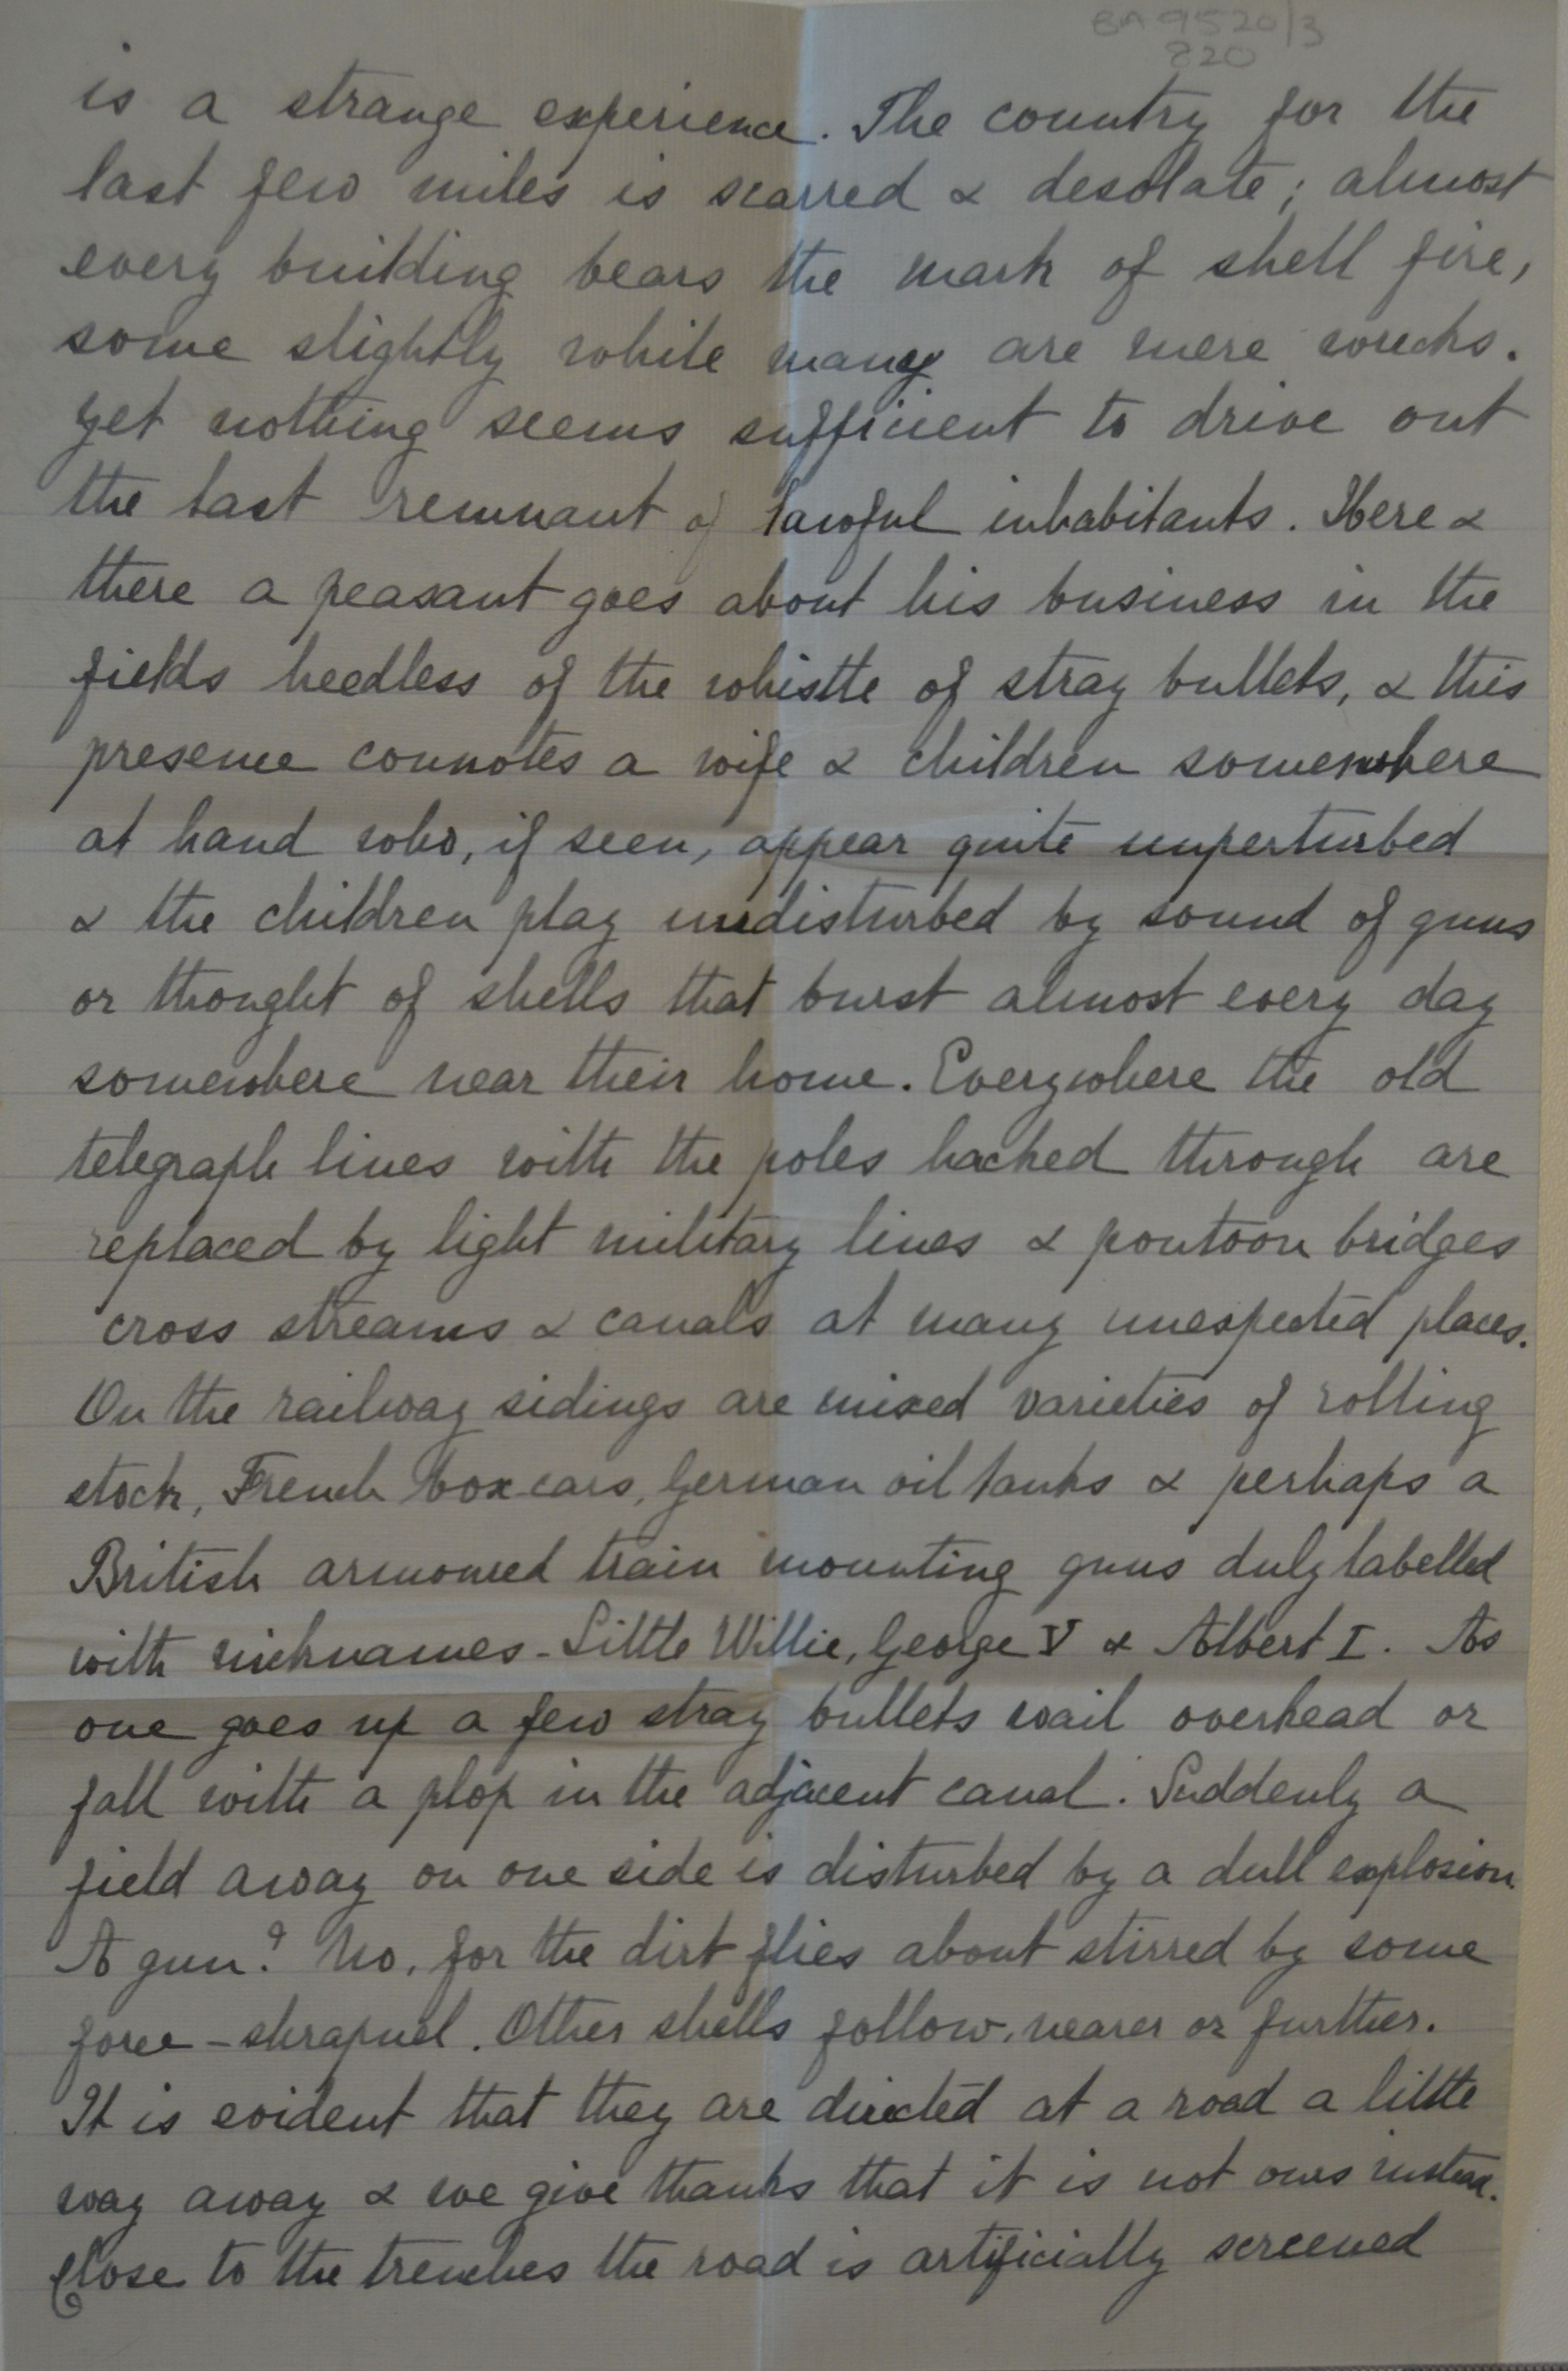 BA 9520/3
820
is a strange experience. The country for the
last few miles is scarred & desolate; almost
every building bears the mark of shell fire,
some slightly while many are mere wrecks.
Yet nothing seems sufficient to drive out
the last remnant of lawful inhabitants. Here &
there a peasant goes about his business in the
fields heedless of the whistle of stray bullets, & this
presence connotes a wife & children somewhere
at hand who, if seen, appear quite unperturbed
& the children play undisturbed by sound of guns
or thought of shells that burst almost every day
somewhere near their home. Everywhere the old
telegraph lines with the poles hacked through are
replaced by light military lines & pontoon bridges
cross streams & canals at many unexpected places.
On the railway sidings are mixed varieties of rolling
stock, French box-cars, German oil tanks & perhaps a
British armoured train mounting guns duly labelled
with nicknames - Little Willie, George V & Albert I. As
one goes up a few stray bullets wail overhead or
fall with a plop in the adjacent canal. Suddenly a
field away on one side is disturbed by a dull explosion.
A gun? No, for the dirt flies about stirred by some
force - shrapnel. Other shells follow, nearer or further.
It is evident that they are directed at a road a little
way away & we give thanks that it is not ours instead.
Close to the trenches the road is artificially screened